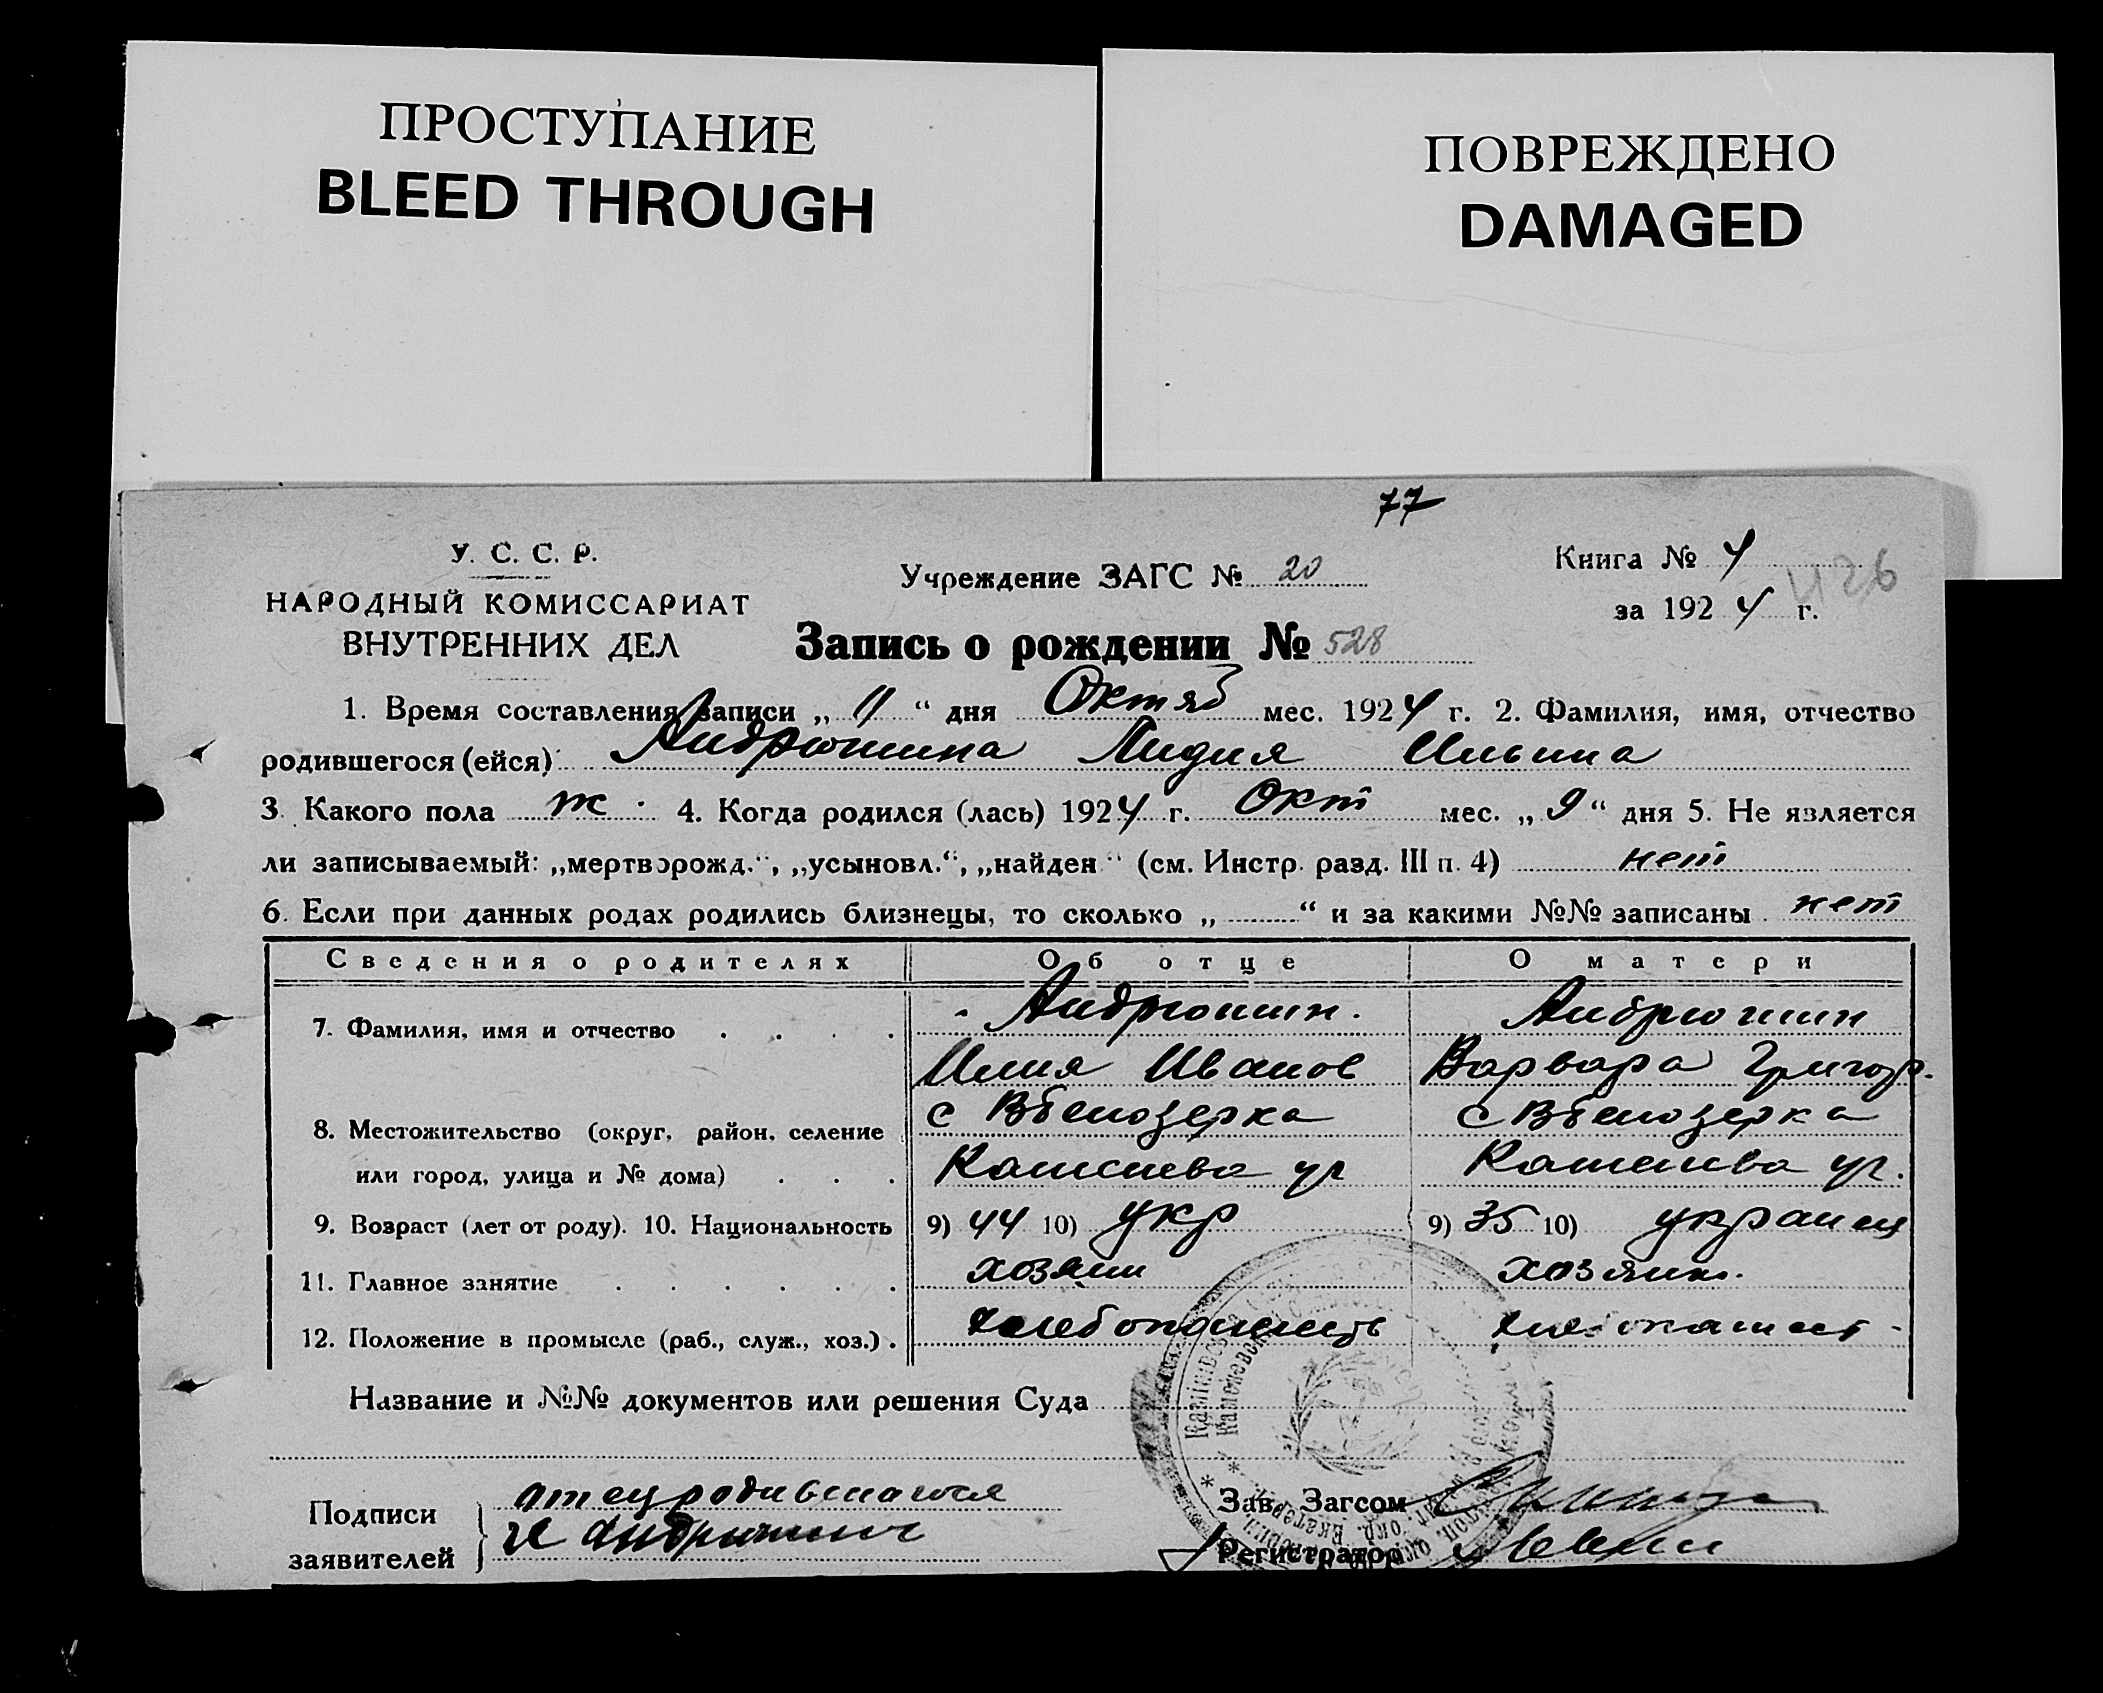 ПРОСТУПАНИЕ
BLEED THROUGH
ПОВРЕЖДЕНО
DAMAGED
77
У. С. С. Р.
НАРОДНЫЙ КОМИССАРИАТ
ВНУТРЕННИХ ДЕЛ
Учреждение ЗАГС № 20
Книга № 4
за 1924 г.
Запись о рождении № 528
1. Время составления записи „ 11 “ дня Октяб мес. 1924 г. 2. Фамилия, имя, отчество
родившегося (ейся) Андрюшина Лидия Ильина
3. Какого пола ж. 4. Когда родился (лась) 1924 г. Окт мес. „ 9 “ дня 5. Не является
ли записываемый: „мертворожд.“, „усыновл.“, „найден“ (см. Инстр. разд. III п. 4) нет
6. Если при данных родах родились близнецы, то сколько „ “ и за какими №№ записаны нет
Сведения о родителях Об отце О матери
7. Фамилия, имя и отчество Андрюшин. Андрюшин
Илия Иванов Варвара Григор.
8. Местожительство (округ, район, селение с Вбелозерка с Вбелозерка
или город, улица и № дома) ул ул.
9. Возраст (лет от роду). 10. Национальность 9) 44 10) укр 9) 35 10) украинц
11. Главное занятие хозяин хозяинк.
12. Положение в промысле (раб., служ., хоз.)
Название и №№ документов или решения Суда
Подписи заявителей
отец родившагося
И Андрюшин
Зав. Загсом
Регистратор